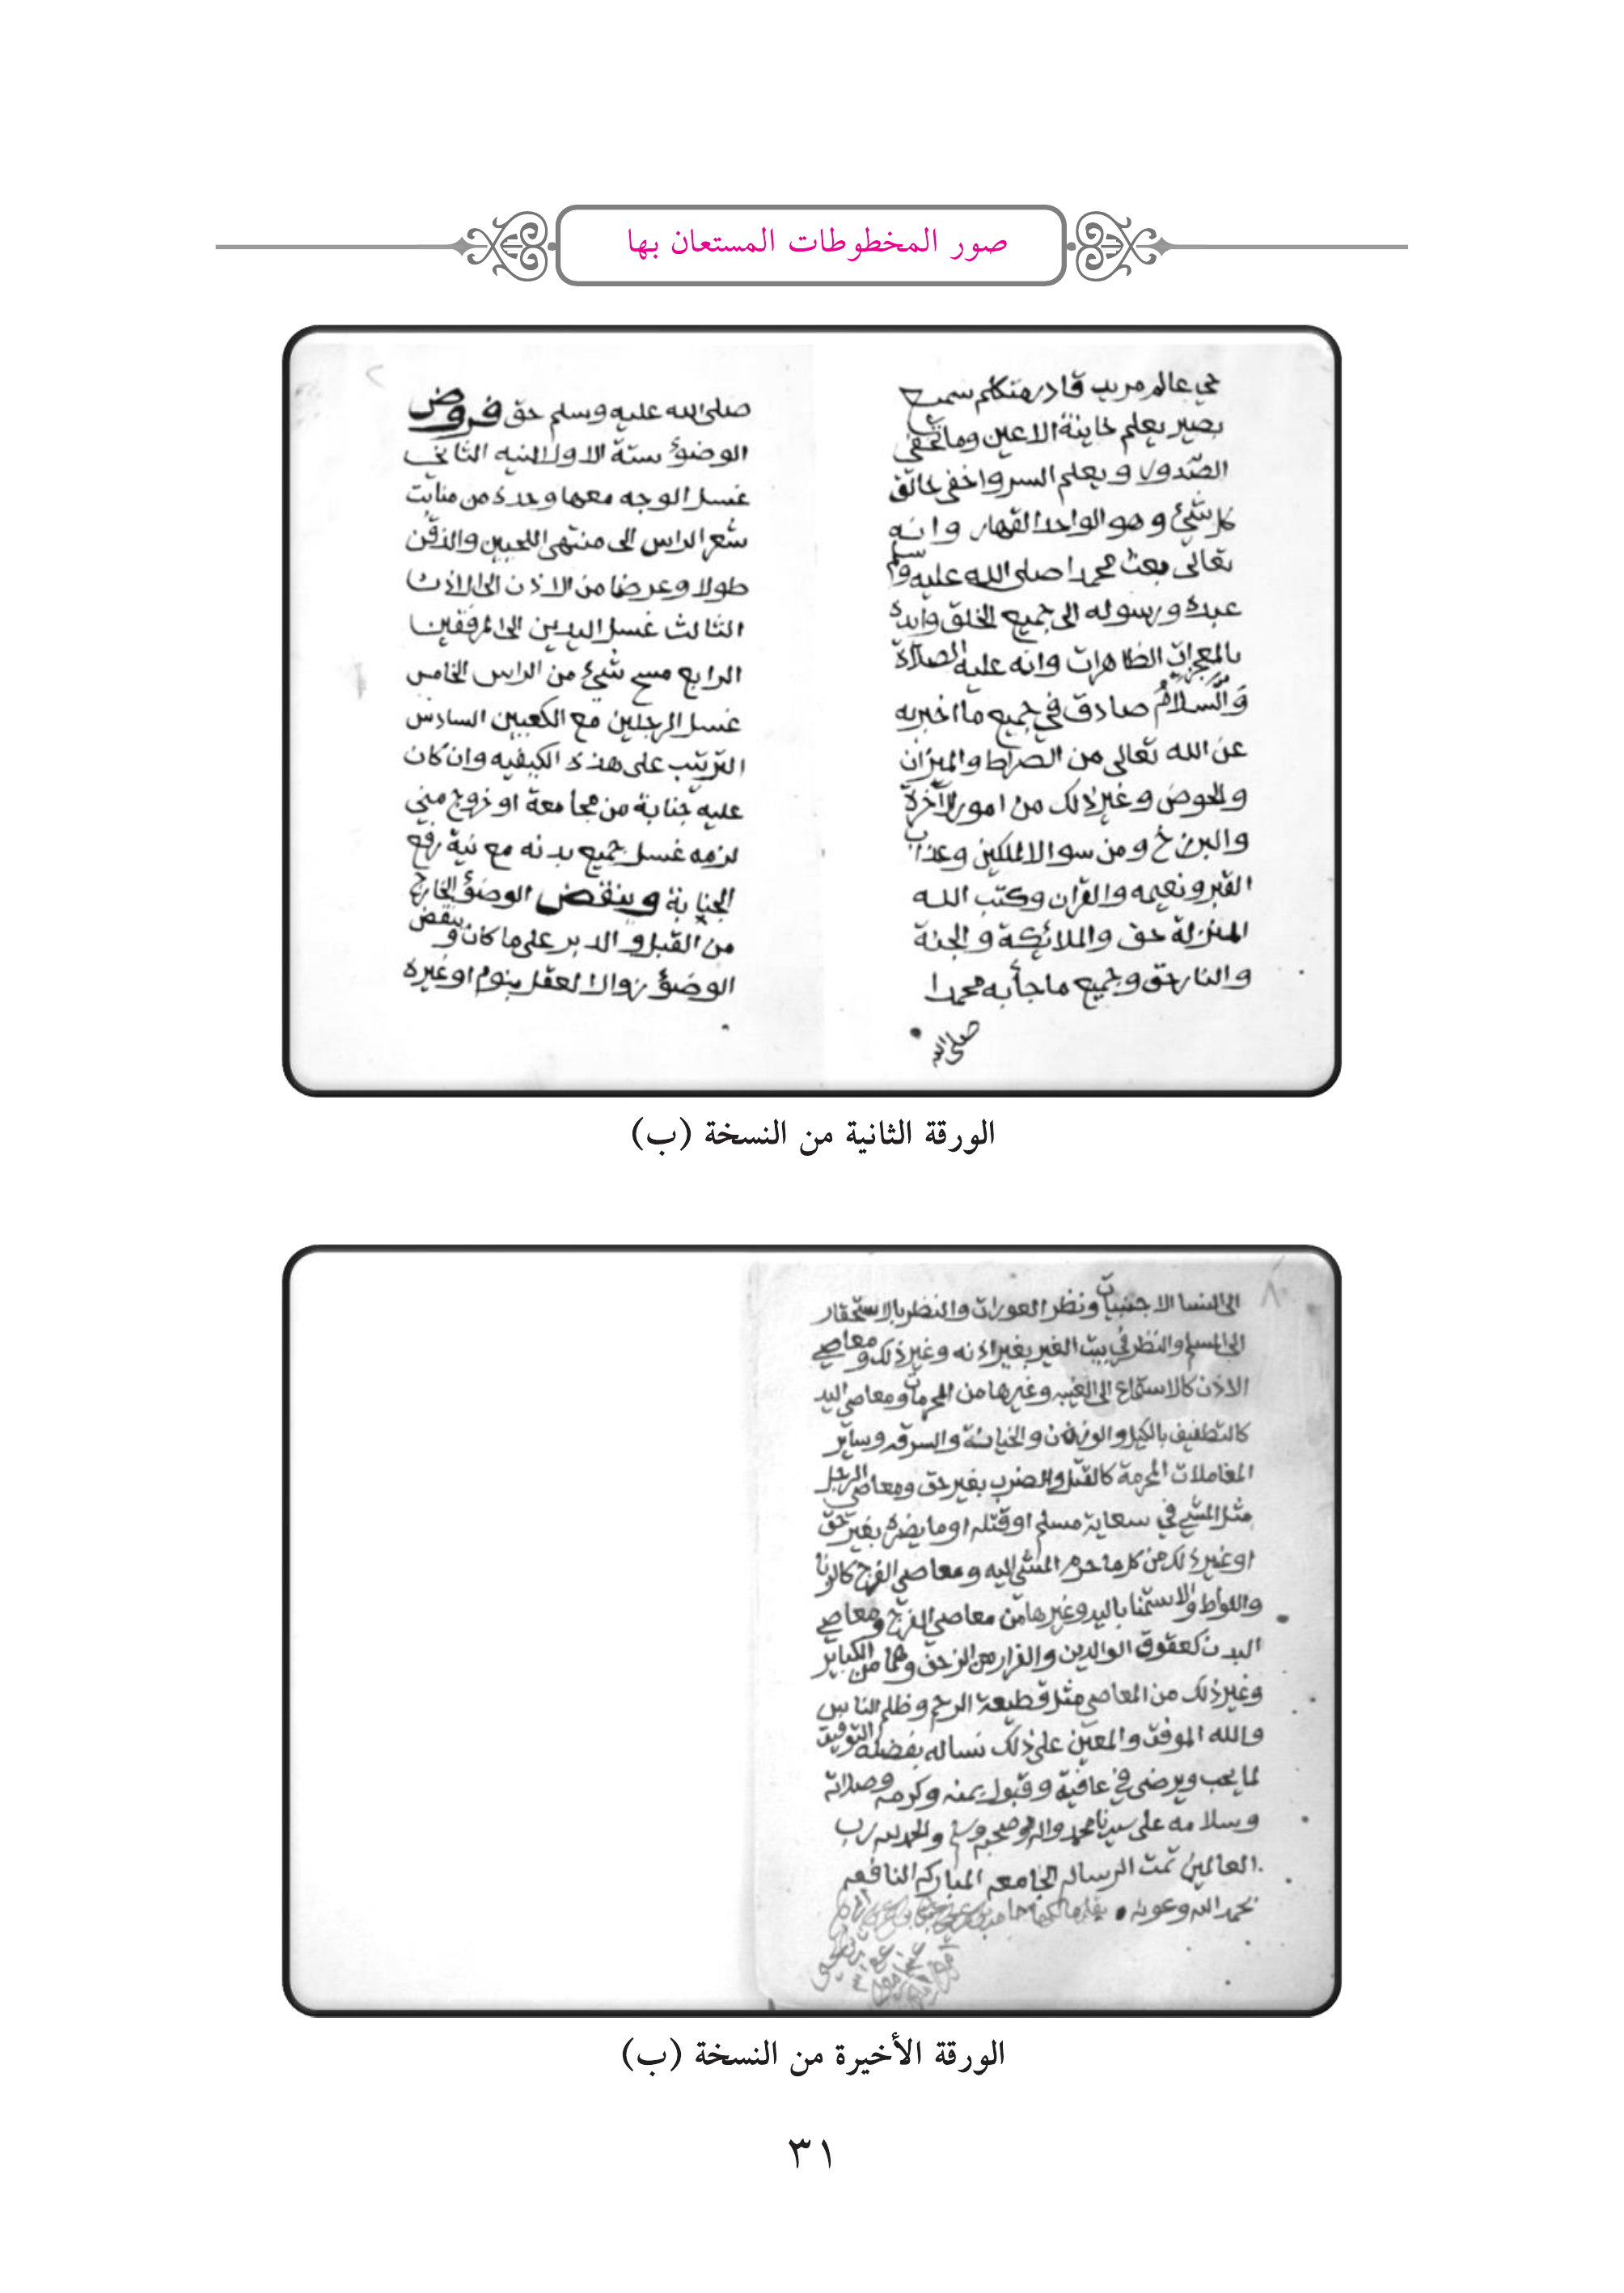 صور المخطوطات المستعان بها
حي عالم مريد قادر متكلم سميع
بصير يعلم خاينة الاعين وما تخفي
الصدور ويعلم السر واخفى خالق
كل شئ وهو الواحد القهار وانه
تعالى بعث محمدا صلى الله عليه وسلم
عبده ورسوله الى جميع الخلق وايده
بالمعجزات الظاهرات وانه عليه الصلاة
وَالسلامُ صادق في جميع ما اخبر به
عن الله تعالى من الصراط والميزان
والحوض وغير ذلك من امور الآخرة
والبرزخ ومن سوال الملكين وعذاب
القبر ونعيمه والقران وكتب الله
المنزلة حق والملائكة والجنة
والنار حق وجميع ما جأ به محمدا
صلى الله
صلى الله عليه وسلم حق فروض
الوضؤ ستة الاول النيه الثاني
غسل الوجه معها وحده من منابت
شعر الراس الى منتهى اللحيين والذقن
طولا وعرضا من الاذن الى الاذن
الثالث غسل اليدين الى المرفقين
الرابع مسح شئ من الراس الخامس
غسل الرجلين مع الكعبين السادس
الترتيب على هذه الكيفيه وان كان
عليه جنابة من مجامعة او خروج مني
لزمه غسل جميع بدنه مع نية رفع
الجنابة وينقض الوضؤ الخارج
من القبل والدبر على ما كان وينقض
الوضؤ زوال العقل بنوم او غيره
الورقة الثانية من النسخة (ب)
٨
الى النسا الاجنبيات ونظر العورات والنظر بالاستحقار
الى المسلم والنظر في بيت الغير بغير اذنه وغير ذلك ومعاصي
الاذن كالاستماع الى الغيبه وغيرها من المحرمات ومعاصي اليد
كالتطفيف بالكيل والوزن والخيانة والسرقه وساير
المعاملات المحرمة كالقتل والضرب بغير حق ومعاصي الرجل
مثل المشي في سعاية مسلم او قتله او ما يضره بغير حق
او غير ذلك من كل ما حرم المشي اليه ومعاصي الفرج كالزنا
واللواط والاستمنا باليد وغيرها من معاصي الفرج ومعاصي
البدن كعقوق الوالدين والفرار من الزحف وهما من الكباير
وغير ذلك من المعاصي مثل قطيعة الرحم وظلم الناس
والله الموفق والمعين على ذلك نساله بفضله التوفيق
لما يحب ويرضى في عافية وقبول بمنه وكرمه وصلاته
وسلامه على سيدنا محمد واله وصحبه وسلم والحمد لله رب
العالمين تمت الرساله الجامعه المباركه النافعه
بحمد الله وعونه
الورقة الأخيرة من النسخة (ب)
٣١